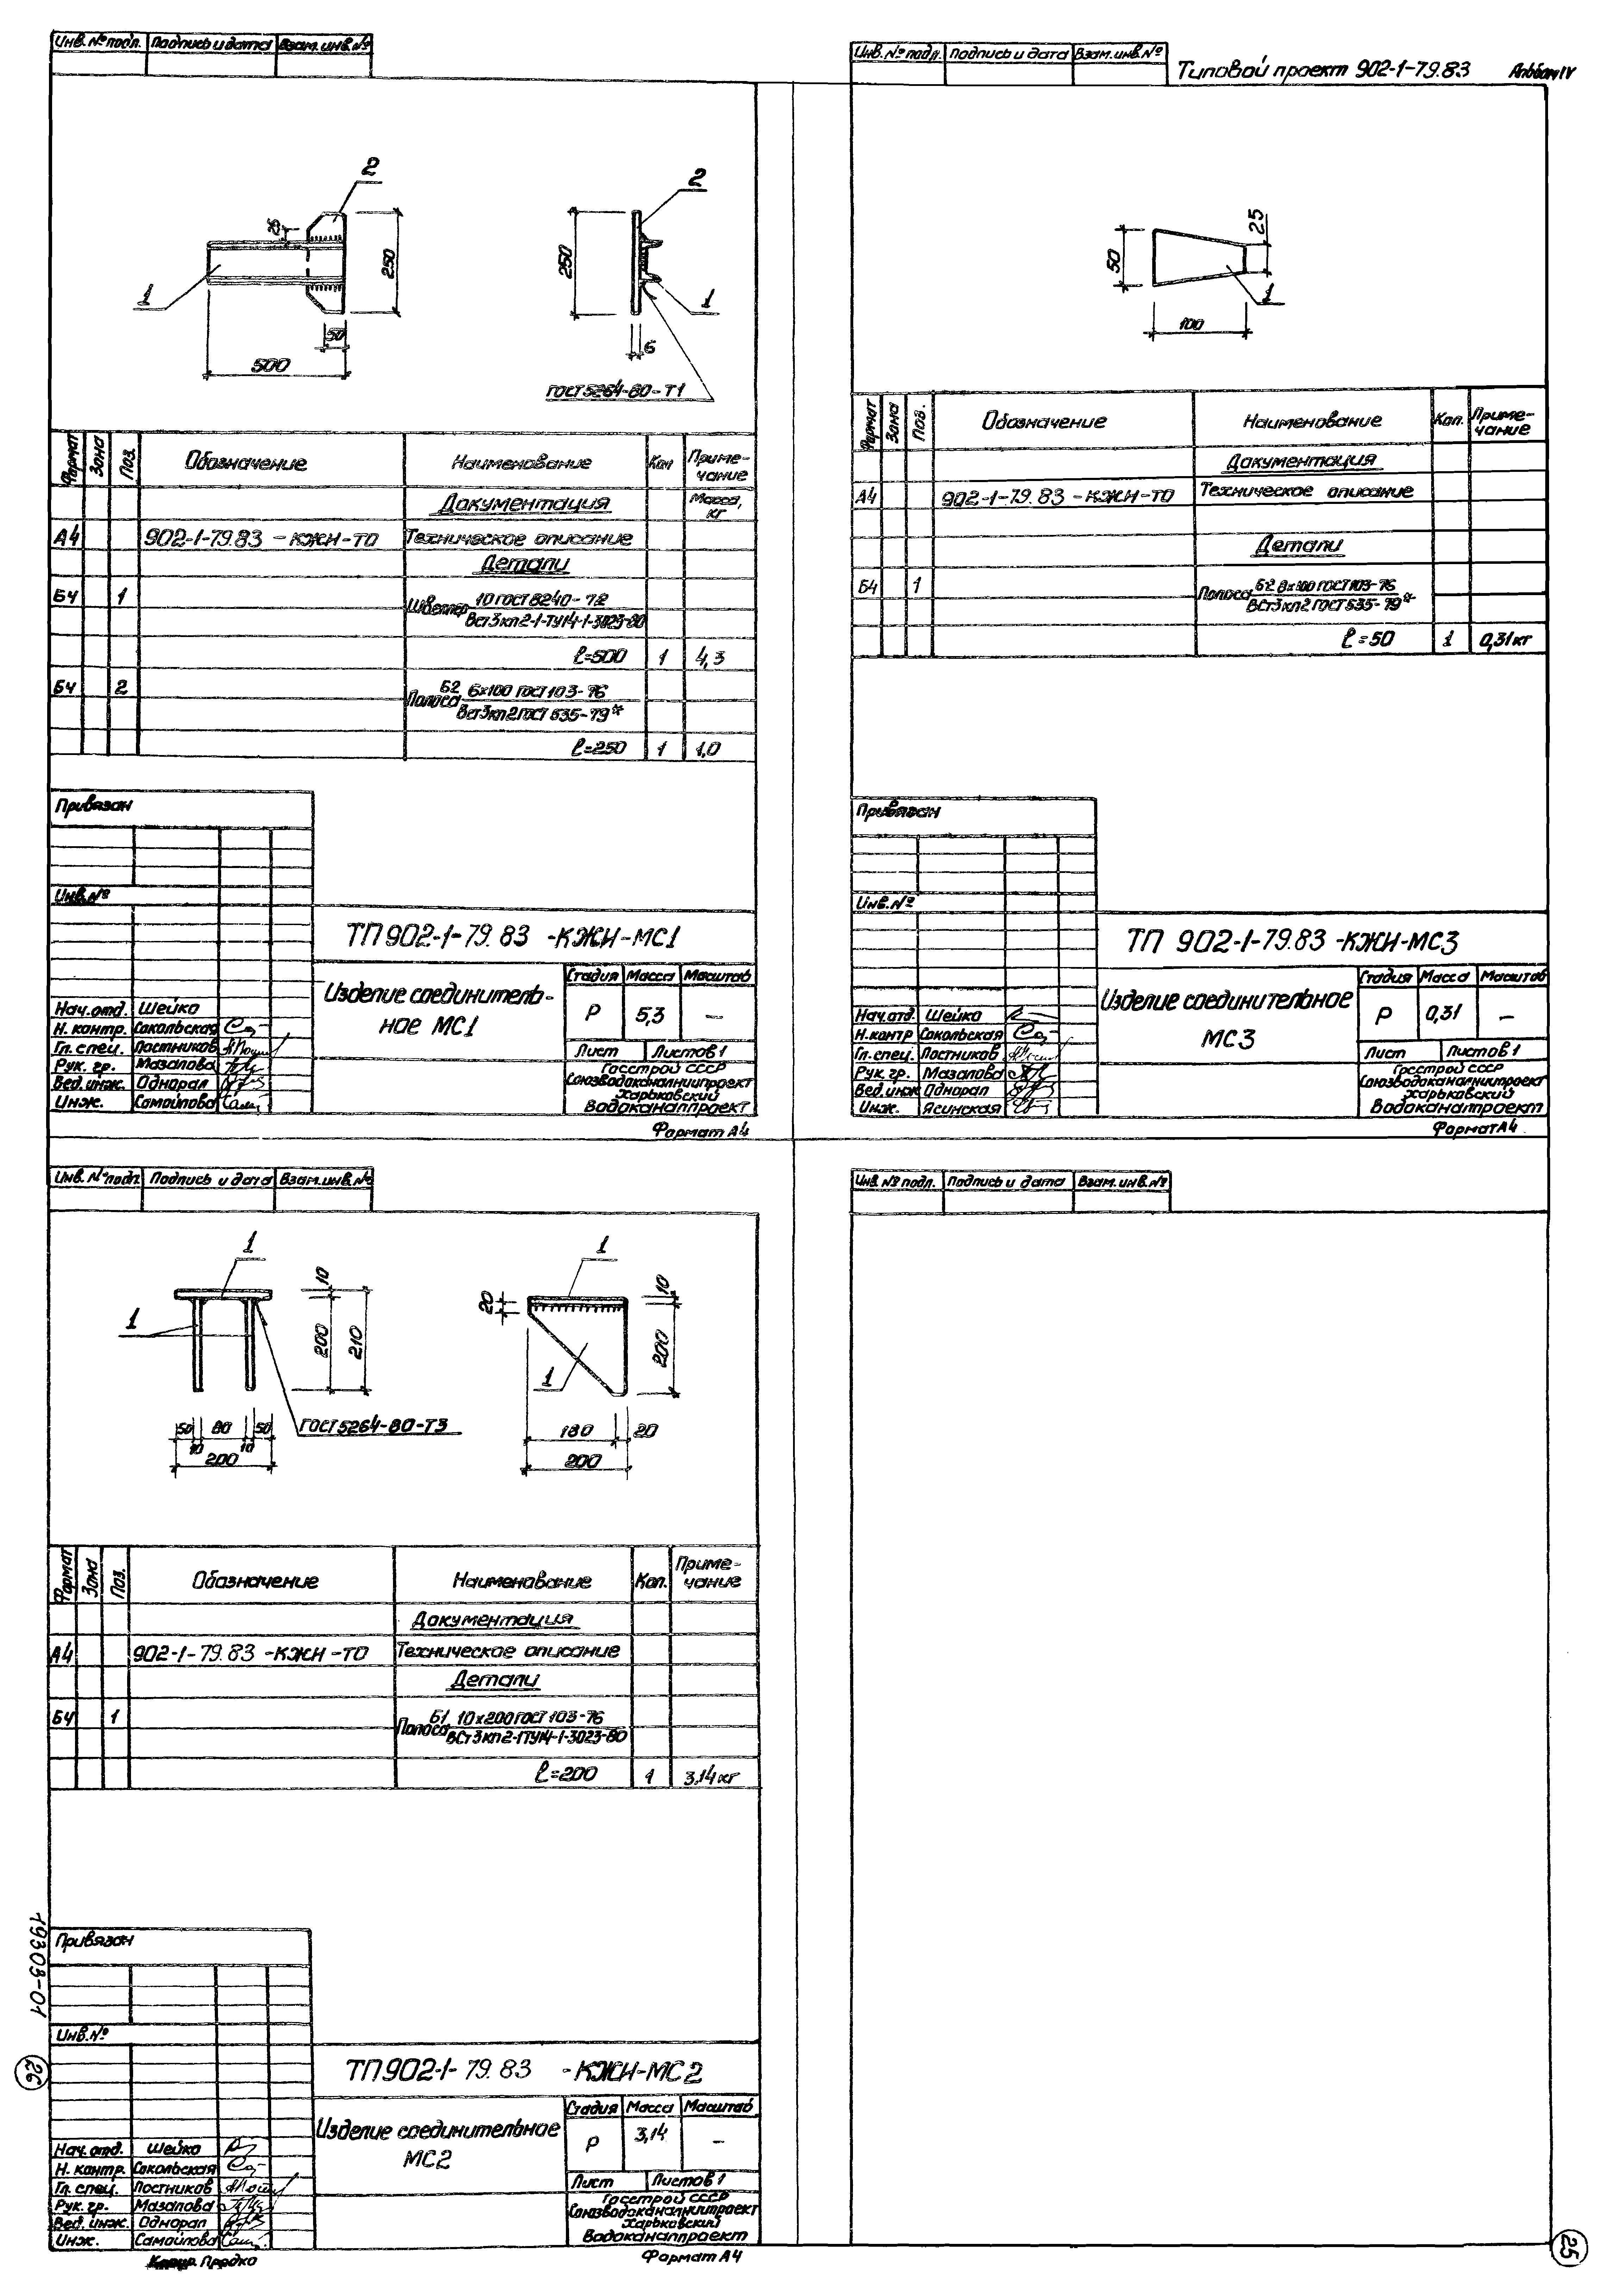 Инв. № подл. Подпись и дата Взам. инв. №
2
25
250
1
50
500
2
250
1
6
ГОСТ 5264-80-Т1
Формат Зона Поз. Обозначение Наименование Кол Приме-
чание
Документация Масса,
кг
А4 902-1-79.83 -КЖИ-ТО Техническое описание
Детали
БЧ 1 Швеллер 10 ГОСТ 8240-72
ВСт3кп2-1-ТУ14-1-3023-80
ℓ=500 1 4,3
БЧ 2 Полоса Б2 6х100 ГОСТ 103-76
ВСт3кп2 ГОСТ 535-79*
ℓ=250 1 1,0
Привязан
Инв.№
ТП 902-1-79.83 -КЖИ-МС1
Изделие соединитель-
ное МС1
Стадия Масса Масштаб
Р 5,3 —
Лист Листов 1
Госстрой СССР
Союзводоканалниипроект
Харьковский
Водоканалпроект
Нач.отд. Шейко
Н. контр. Сокольская
Гл. спец. Постников
Рук. гр. Мазалова
Вед. инж. Однорал
Инж. Самойлова
Формат А4
Инв. № подл. Подпись и дата Взам. инв. №
Типовой проект 902-1-79.83 Альбом IV
50
25
1
100
Формат Зона Поз. Обозначение Наименование Кол. Приме-
чание
Документация
А4 902-1-79.83 -КЖИ-ТО Техническое описание
Детали
БЧ 1 Полоса Б2 8х100 ГОСТ 103-76
ВСт3кп2 ГОСТ 535-79*
ℓ=50 1 0,31кг
Привязан
Инв.№
ТП 902-1-79.83 -КЖИ-МС3
Изделие соединительное
МС3
Стадия Масса Масштаб
Р 0,31 —
Лист Листов 1
Госстрой СССР
Союзводоканалниипроект
Харьковский
Водоканалпроект
Нач.отд. Шейко
Н.контр Сокольская
Гл.спец. Постников
Рук. гр. Мазалова
Вед.инж Однорал
Инж. Ясинская
Формат А4
Инв. № подл. Подпись и дата Взам.инв.№
1
1
10
200
210
50 80 50
10 10
200
ГОСТ 5264-80-Т3
1
20
10
200
1
180 20
200
Формат Зона Поз. Обозначение Наименование Кол. Приме-
чание
Документация
А4 902-1-79.83 -КЖИ-ТО Техническое описание
Детали
БЧ 1 Полоса Б1 10х200 ГОСТ 103-76
ВСт3кп2-1ТУ14-1-3023-80
ℓ=200 1 3,14кг
Привязан
Инв.№
ТП 902-1-79.83 -КЖИ-МС2
Изделие соединительное
МС2
Стадия Масса Масштаб
Р 3,14 —
Лист Листов 1
Госстрой СССР
Союзводоканалниипроект
Харьковский
Водоканалпроект
Нач.отд. Шейко
Н. контр. Сокольская
Гл. спец. Постников
Рук. гр. Мазалова
Вед. инж. Однорал
Инж. Самойлова
Формат А4
19303-01
26
Инв. № подл. Подпись и дата Взам. инв. №
25